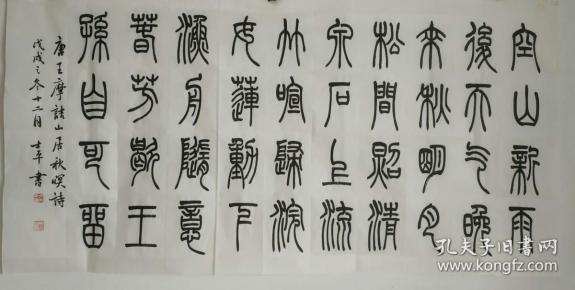 空山新雨
後天气晚
來秋明月
松間照清
泉石上流
竹喧歸浣
女蓮動下
漁舟隨意
春芳歇王
孫自可留
唐王摩詰山居秋暝詩
戊戌之冬十二月 士平書
孔夫子旧书网
www.kongfz.com